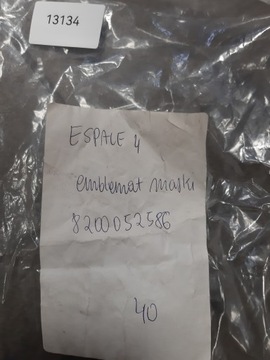 13134
ESPACE 4
emblemat maski
8200052586
40